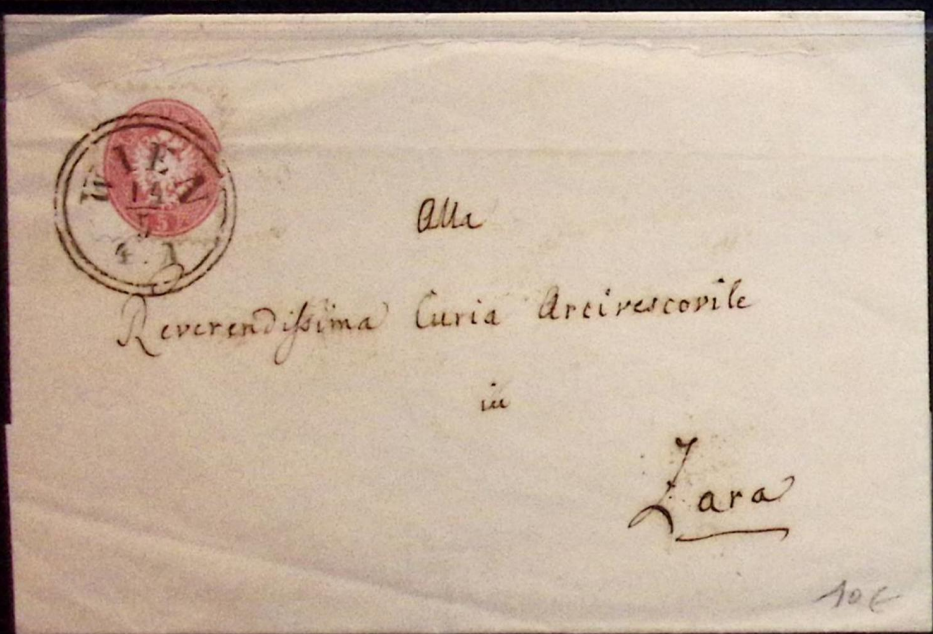 WIEN
14
5
4. A
Alla
Reverendissima Curia Arcivescovile
in
Zara
10€